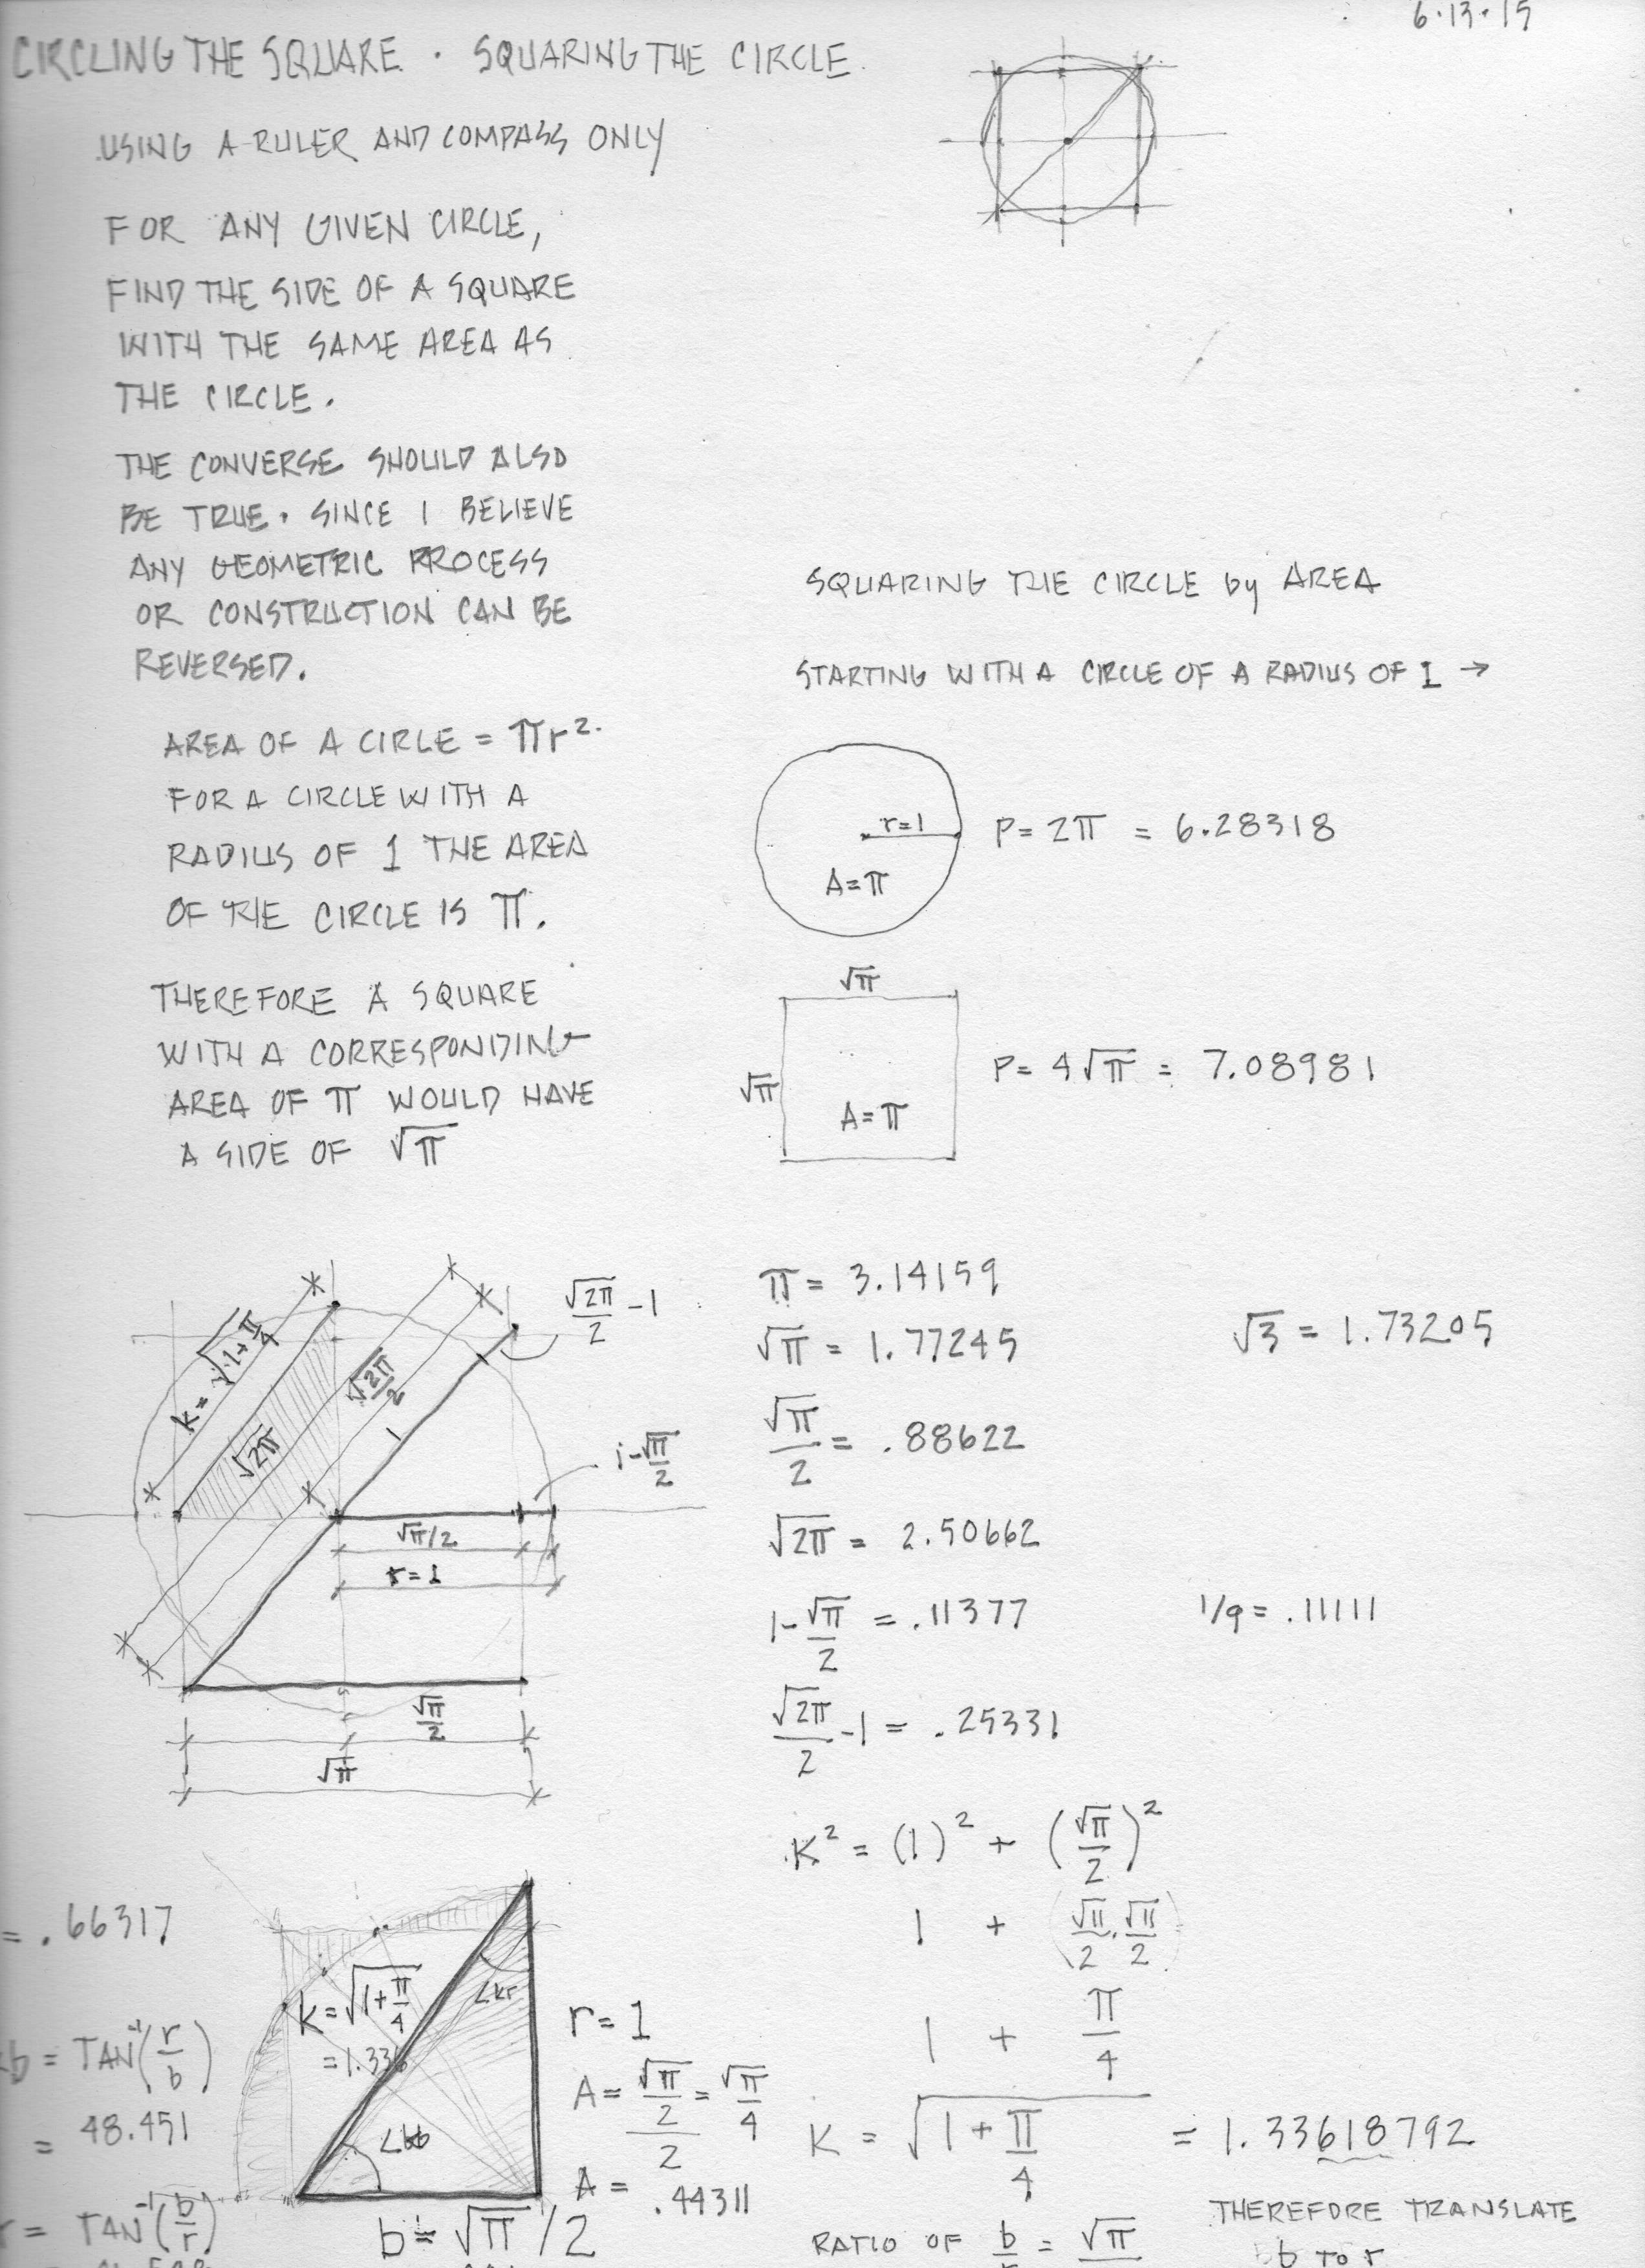 6·13·15
CIRCLING THE SQUARE · SQUARING THE CIRCLE
USING A RULER AND COMPASS ONLY
FOR ANY GIVEN CIRCLE,
FIND THE SIDE OF A SQUARE
WITH THE SAME AREA AS
THE CIRCLE.
THE CONVERSE SHOULD ALSO
BE TRUE. SINCE I BELIEVE
ANY GEOMETRIC PROCESS
OR CONSTRUCTION CAN BE
REVERSED.
AREA OF A CIRLE = πr².
FOR A CIRCLE WITH A
RADIUS OF 1 THE AREA
OF THE CIRCLE IS π.
THEREFORE A SQUARE
WITH A CORRESPONDING
AREA OF π WOULD HAVE
A SIDE OF √π
SQUARING THE CIRCLE by AREA
STARTING WITH A CIRCLE OF A RADIUS OF 1 →
r=1
A=π
P= 2π = 6.28318
√π
√π
A=π
P= 4√π = 7.08981
K= √1+π/4
√2π
√2π/2
1
√2π/2 -1
1-√π/2
√π/2
r=1
√π/2
√π
π = 3.14159
√π = 1.77245
√3 = 1.73205
√π/2 = .88622
√2π = 2.50662
1-√π/2 = .11377
1/9 = .11111
√2π/2 -1 = .25331
K² = (1)² + (√π/2)²
1 + (√π/2 · √π/2)
1 + π/4
K = √1+π/4 = 1.33618792
THEREFORE TRANSLATE
b TO r
RATIO OF b/r = √π
= .66317
b = TAN⁻¹(r/b)
= 48.451
= TAN⁻¹(b/r)
K=√1+π/4
=1.336
∠kr
∠kb
r=1
A= √π/2/2 = √π/4
A= .44311
b= √π/2